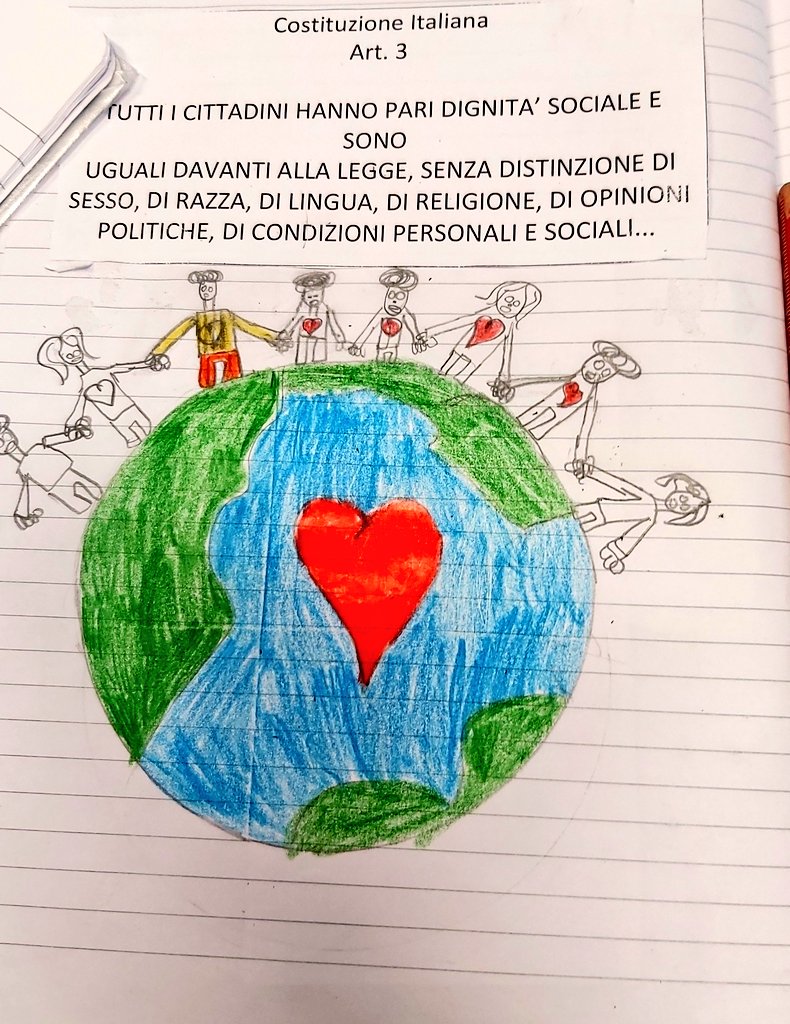 Costituzione Italiana
Art. 3
TUTTI I CITTADINI HANNO PARI DIGNITA' SOCIALE E
SONO
UGUALI DAVANTI ALLA LEGGE, SENZA DISTINZIONE DI
SESSO, DI RAZZA, DI LINGUA, DI RELIGIONE, DI OPINIONI
POLITICHE, DI CONDIZIONI PERSONALI E SOCIALI...